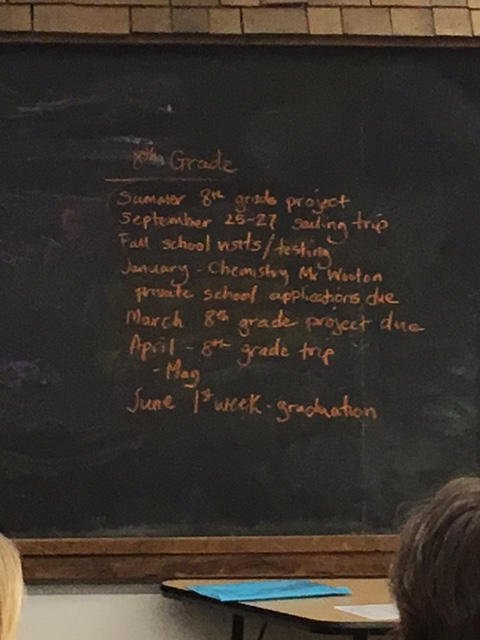 8th Grade
Summer 8th grade project
September 25-27 sailing trip
Fall school visits/testing
January - Chemistry Mr Wooton
private school applications due
March 8th grade project due
April - 8th grade trip
- May
June 1st week - graduation